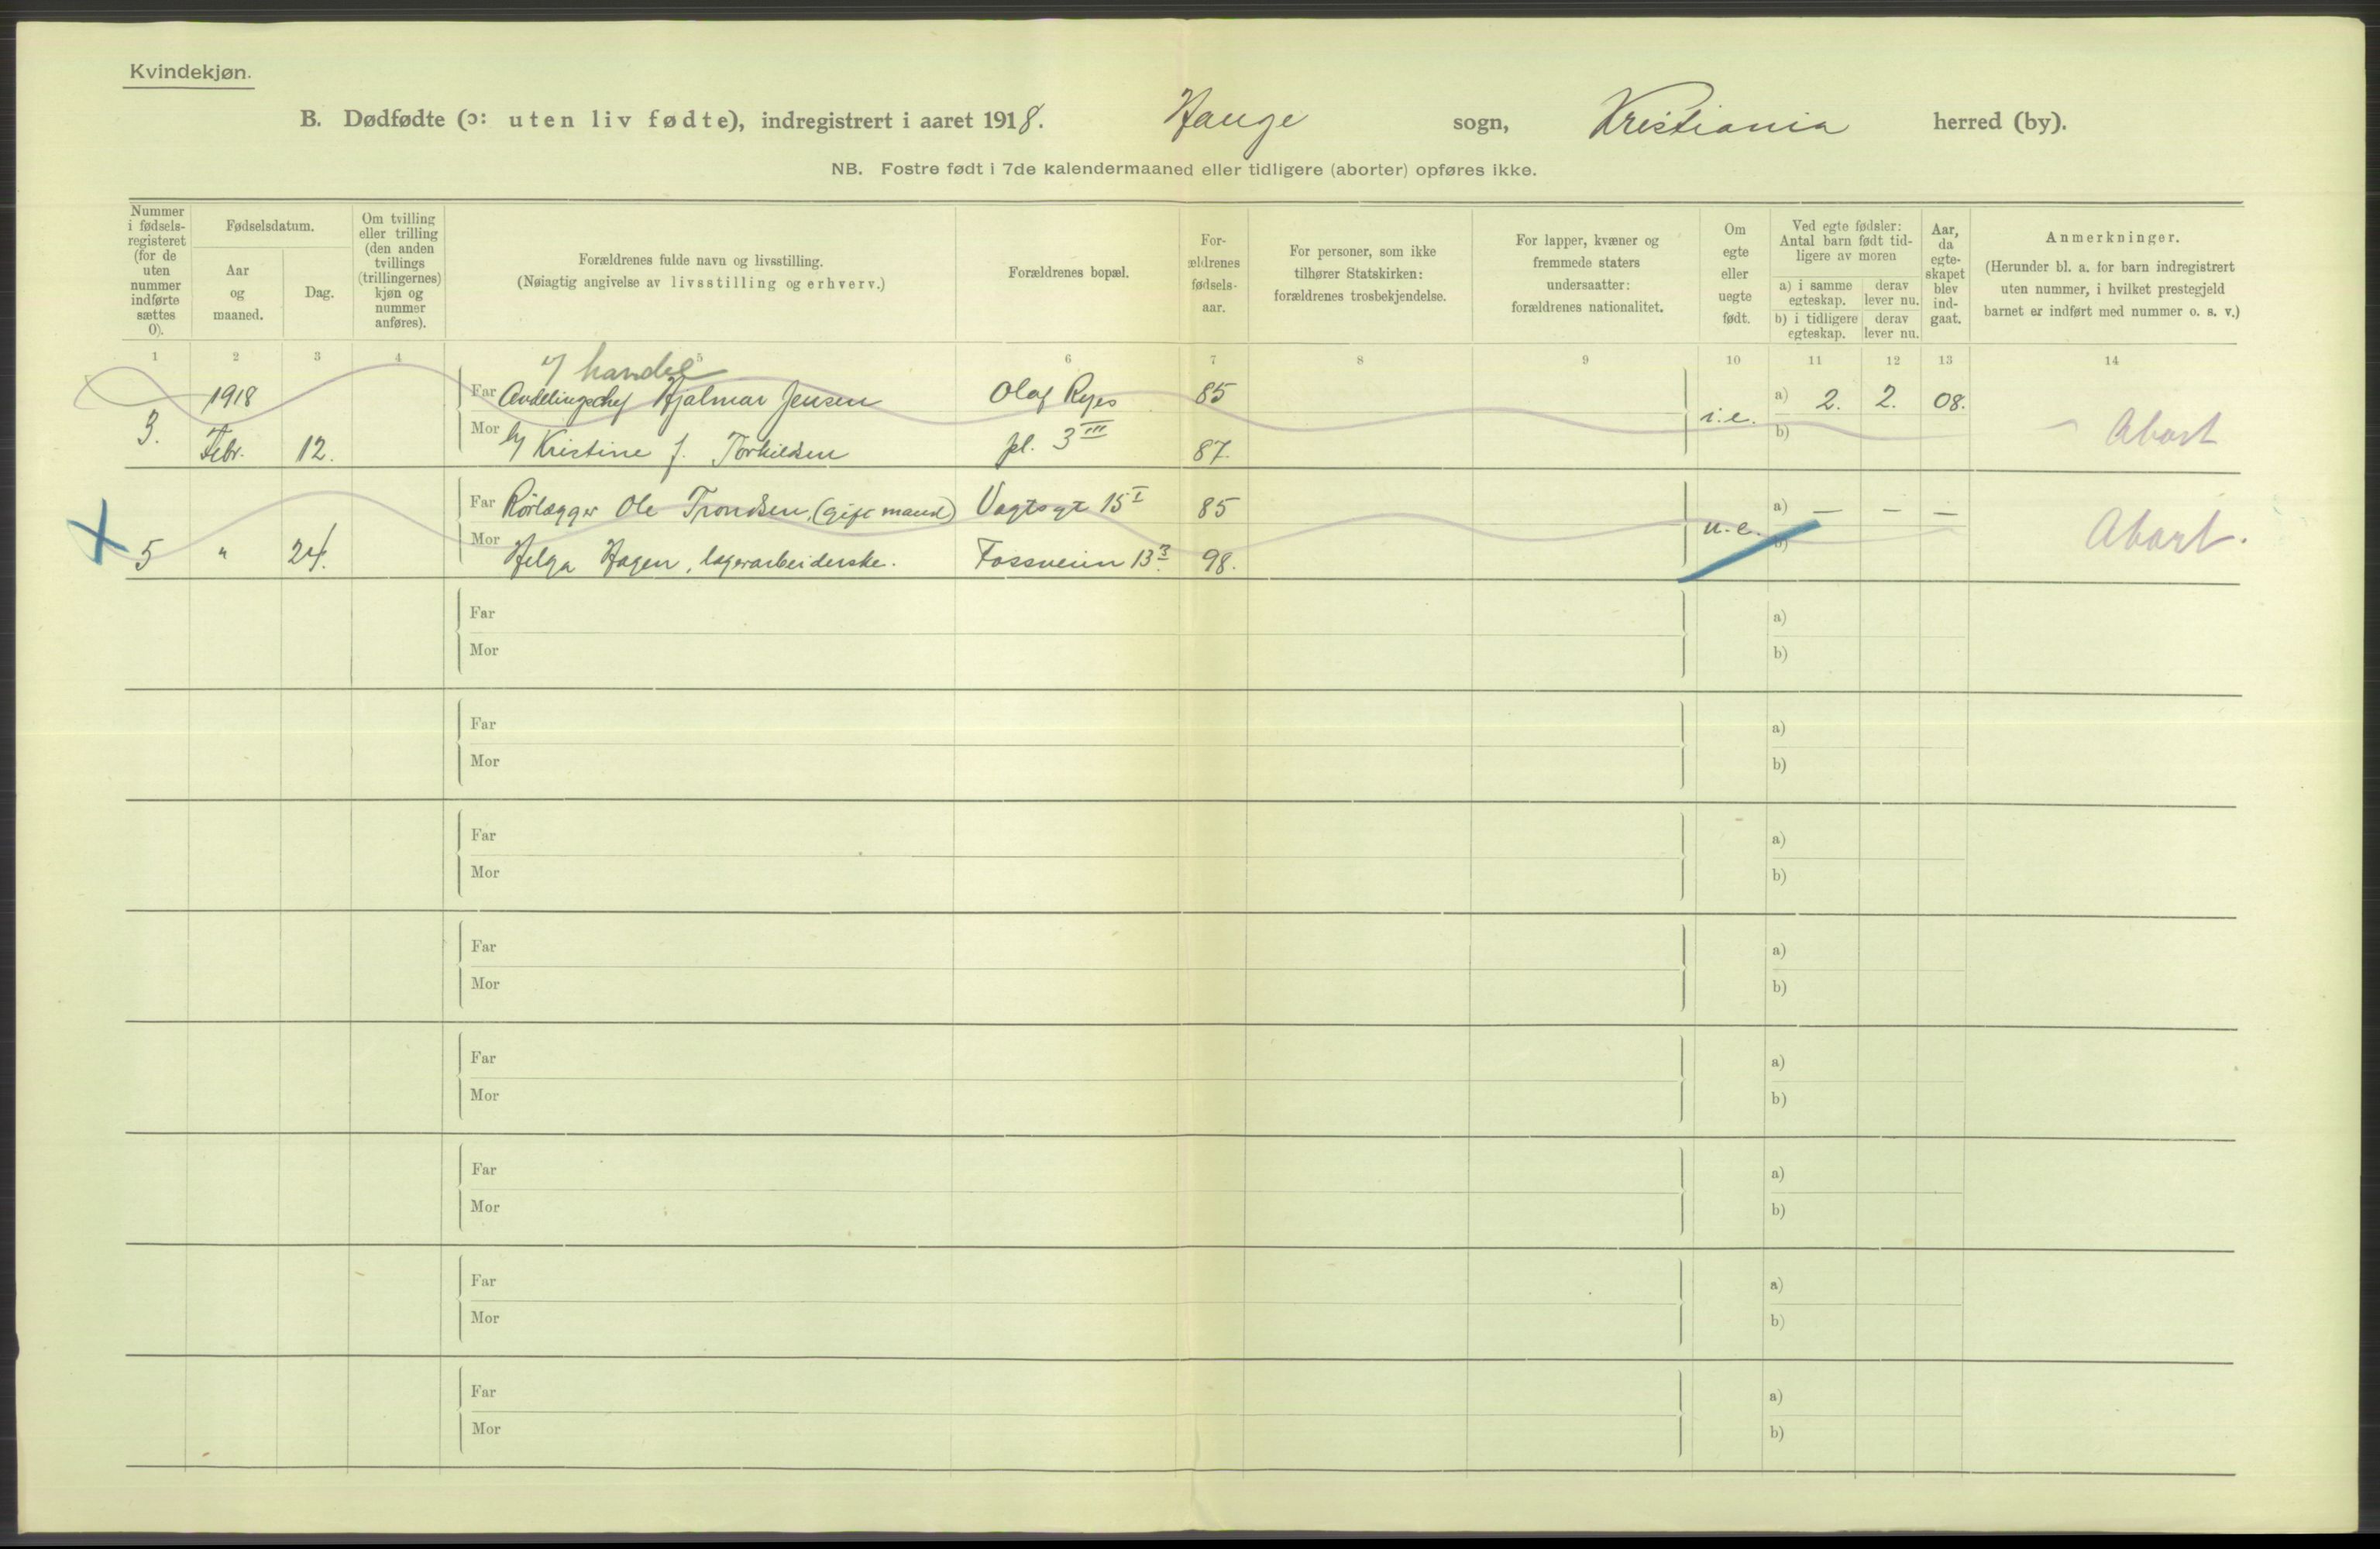 Kvindekjøn.
B. Dødfødte (ɔ: uten liv fødte), indregistrert i aaret 1918. Hauge sogn, Kristiania herred (by).
NB. Fostre født i 7de kalendermaaned eller tidligere (aborter) opføres ikke.
Nummer i fødsels-registeret (for de uten nummer indførte sættes 0).
Fødselsdatum.
Aar og maaned.
Dag.
Om tvilling eller trilling (den anden tvillings (trillingernes) kjøn og nummer anføres).
Forældrenes fulde navn og livsstilling.
(Nøiagtig angivelse av livsstilling og erhverv.)
Forældrenes bopæl.
For-ældrenes fødsels-aar.
For personer, som ikke tilhører Statskirken: forældrenes trosbekjendelse.
For lapper, kvæner og fremmede staters undersaatter: forældrenes nationalitet.
Om egte eller uegte født.
Ved egte fødsler: Antal barn født tid-ligere av moren
a) i samme egteskap.
derav lever nu.
b) i tidligere egteskap.
derav lever nu.
Aar, da egte-skapet blev ind-gaat.
Anmerkninger.
(Herunder bl. a. for barn indregistrert uten nummer, i hvilket prestegjeld barnet er indført med nummer o. s. v.)
1 2 3 4 5 6 7 8 9 10 11 12 13 14
handel
1918 Far Avdelingschef Hjalmar Jensen Olaf Ryes 85 a) 2. 2. 08.
3. Febr. 12. Mor Kristine J. Torkildsen pl. 3 III 87. i.e. b) Abort
Far Rørlægger Ole Trondsen, (gift mand) Vogtsgt 15 I 85 a) — — —
5 " 24. Mor Helga Hagen, lagerarbeiderske. Fossveien 13 3. 98. u.e. b) Abort.
Far a)
Mor b)
Far a)
Mor b)
Far a)
Mor b)
Far a)
Mor b)
Far a)
Mor b)
Far a)
Mor b)
Far a)
Mor b)
Far a)
Mor b)